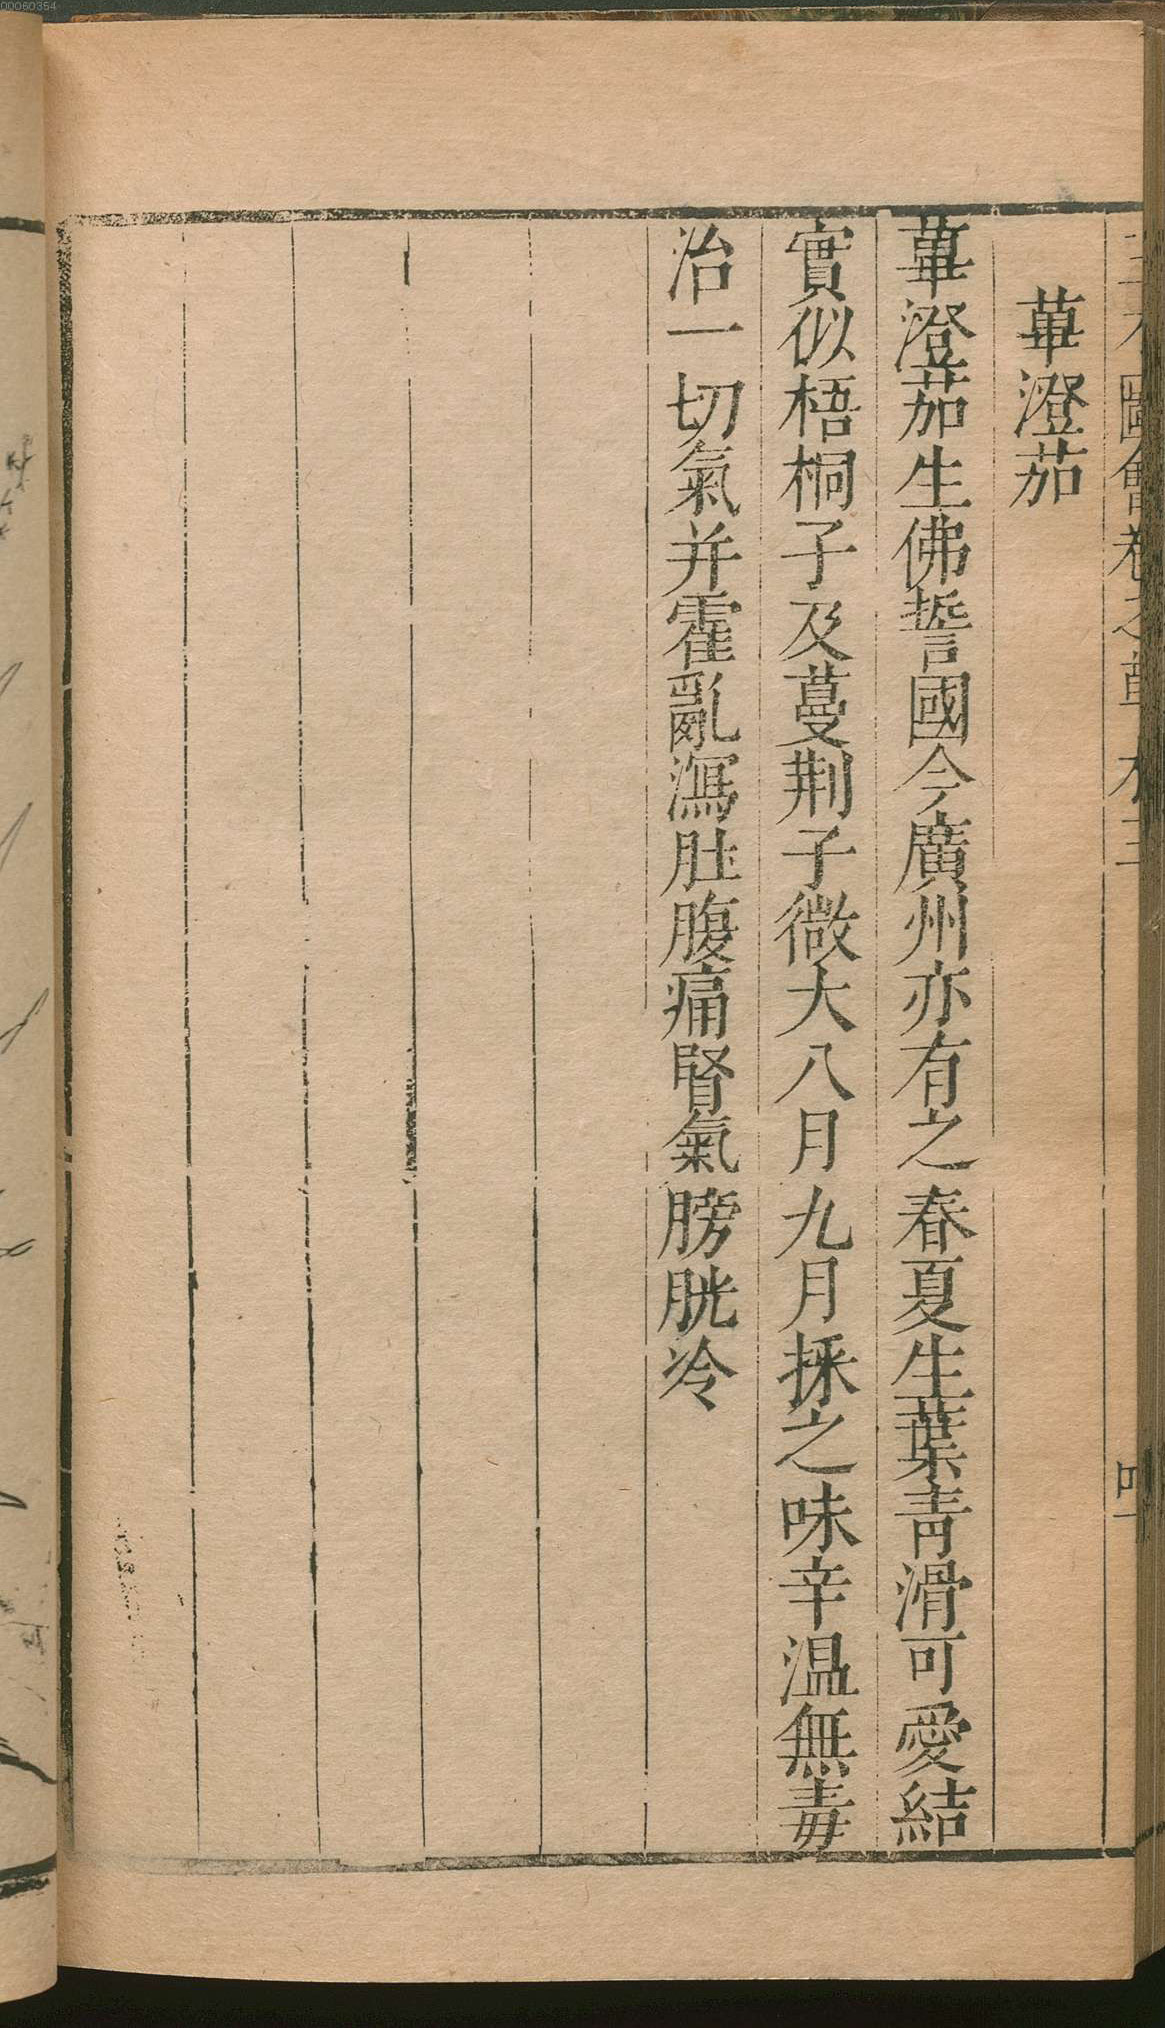 蓽澄茄
蓽澄茄生佛誓國今廣州亦有之春夏生葉青滑可愛結
實似梧桐子及蔓荆子微大八月九月採之味辛温無毒
治一切氣并霍亂瀉肚腹痛腎氣膀胱冷
00060354